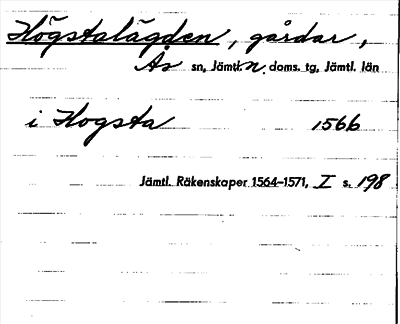 Högstalägden, gårdar,
Ås sn, Jämtl. n. doms. tg, Jämtl. län
i Hogsta 1566
Jämtl. Räkenskaper 1564–1571, I s. 198